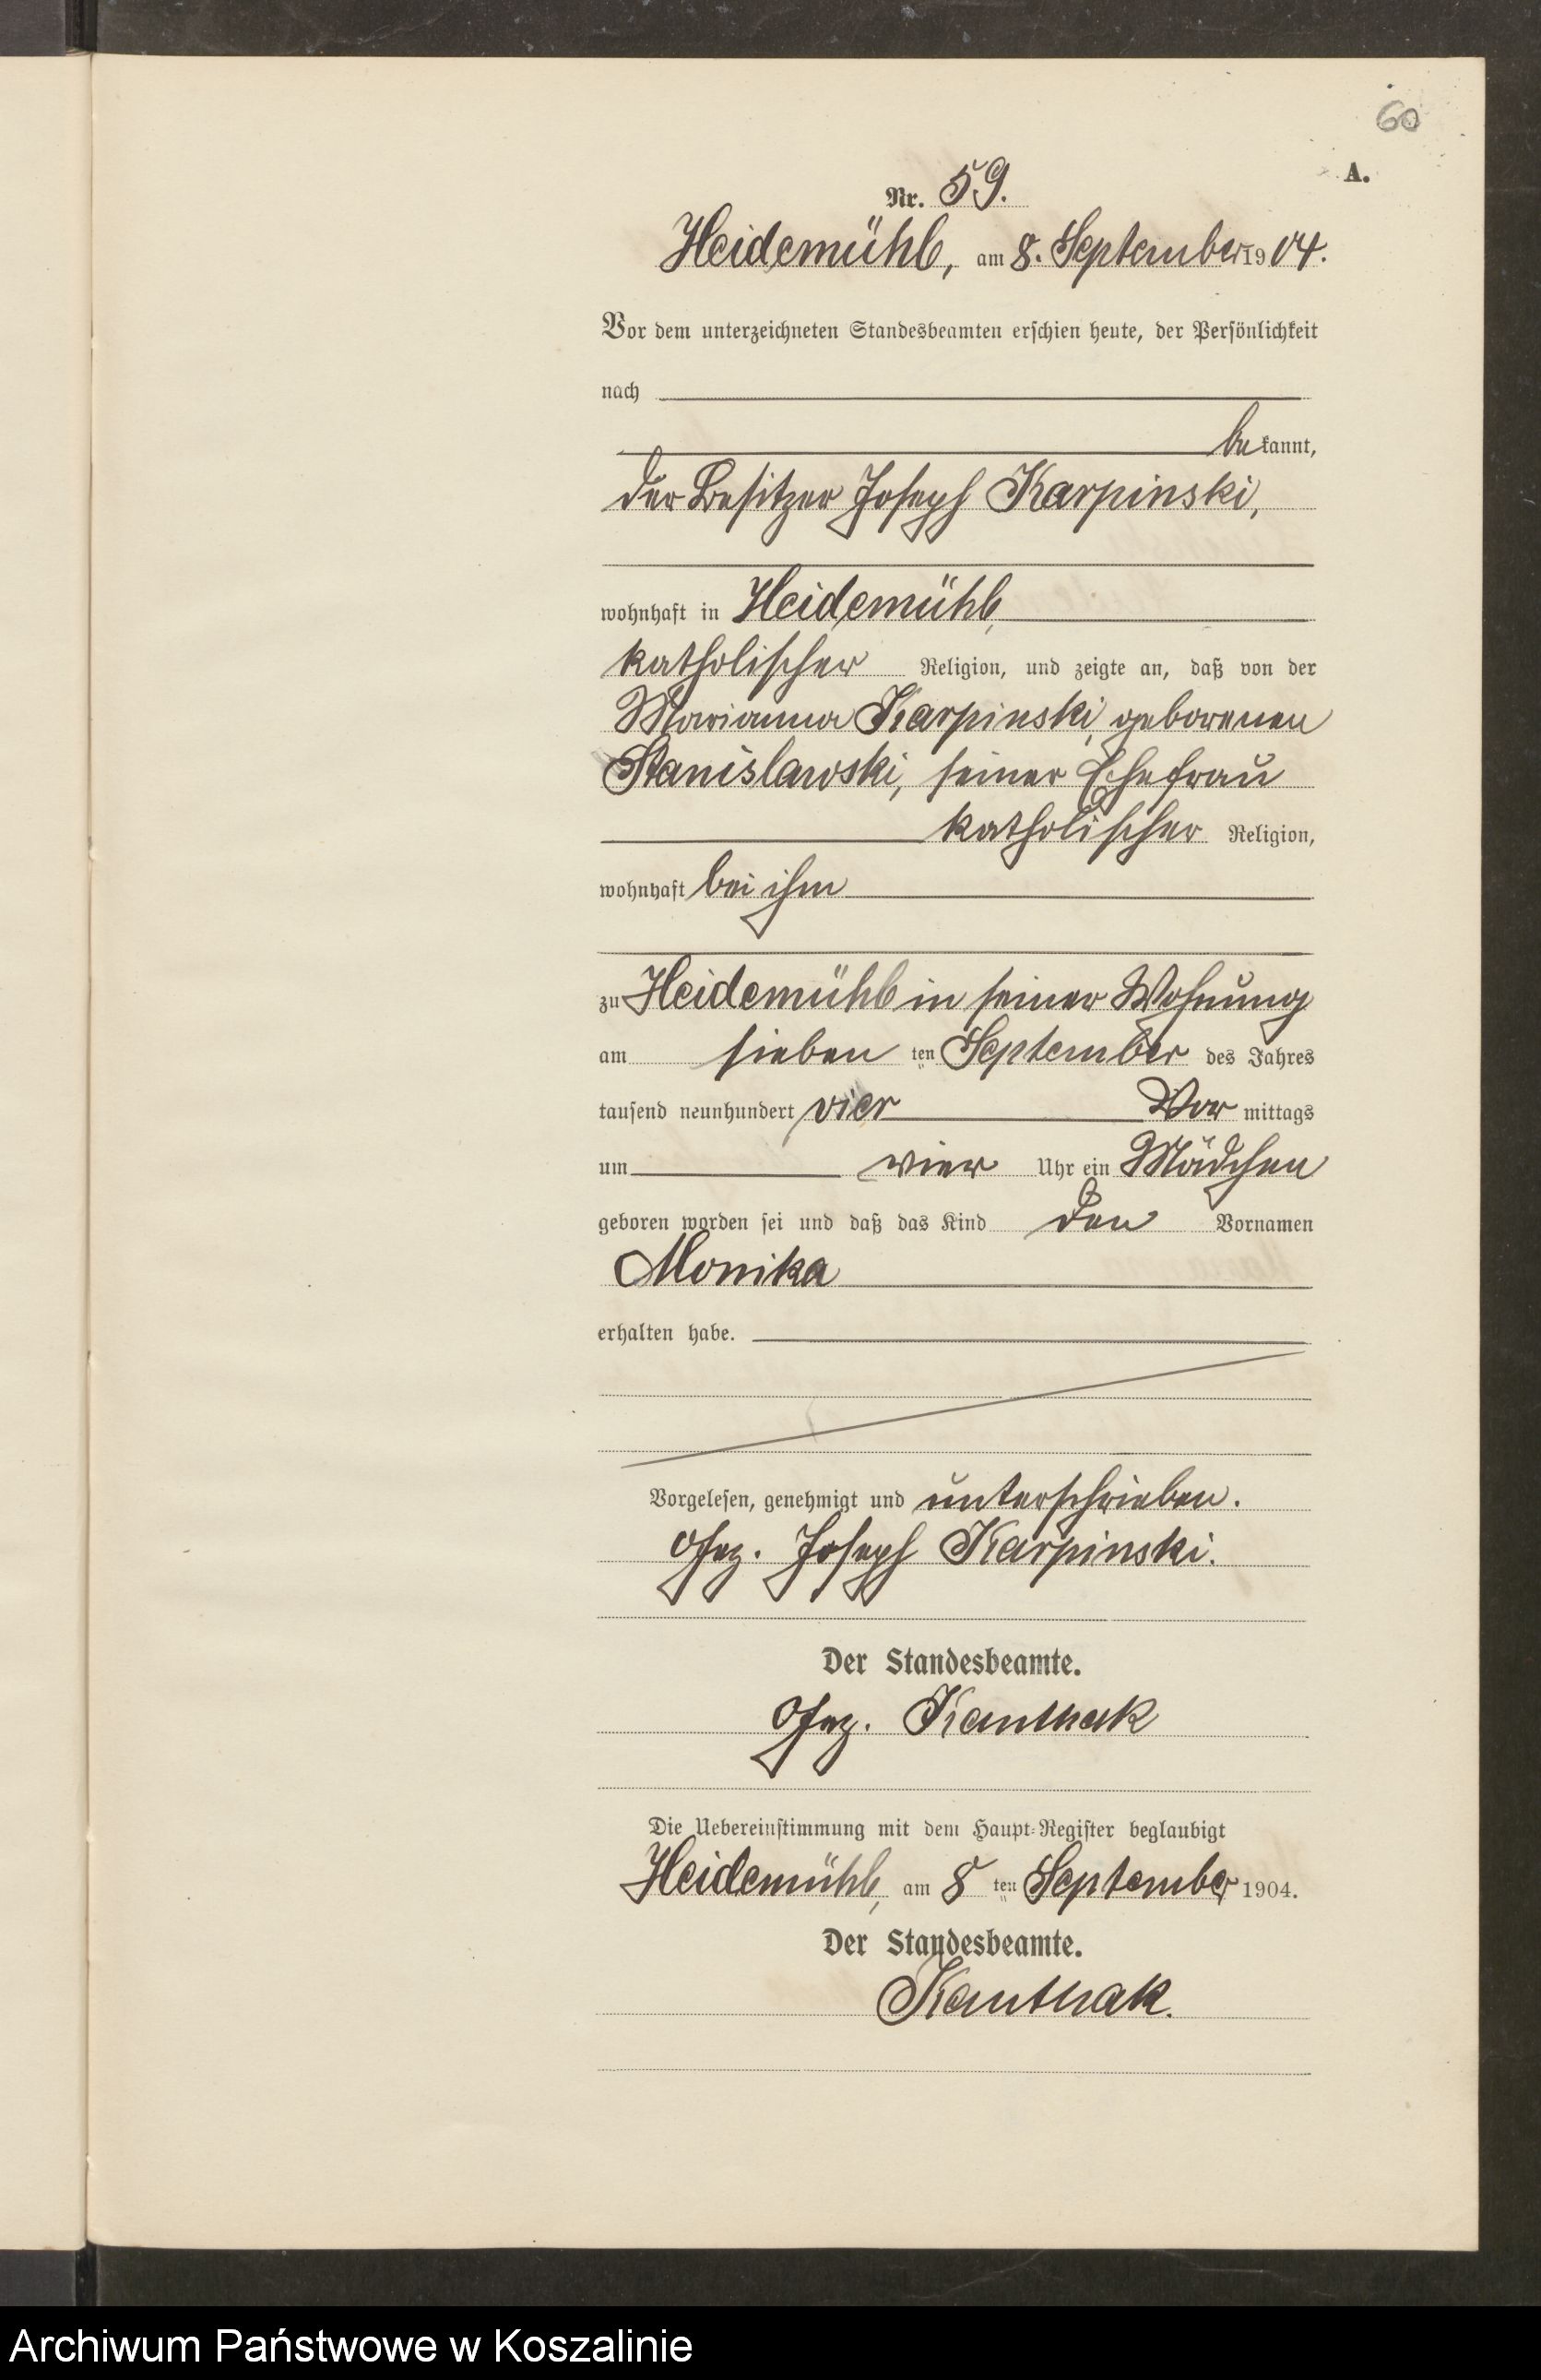 60
A.
Nr. 59.
Heidemühl, am 8. September 1904.
Vor dem unterzeichneten Standesbeamten erschien heute, der Persönlichkeit
nach
bekannt,
der Besitzer Joseph Karpinski,
wohnhaft in Heidemühl,
katholischer Religion, und zeigte an, daß von der
Marianna Karpinski, geborenen
Stanislawski, seiner Ehefrau
katholischer Religion,
wohnhaft bei ihm
zu Heidemühl in seiner Wohnung
am sieben ten September des Jahres
tausend neunhundert vier Vor mittags
um vier Uhr ein Mädchen
geboren worden sei und daß das Kind den Vornamen
Monika
erhalten habe.
Vorgelesen, genehmigt und unterschrieben.
Gez. Joseph Karpinski.
Der Standesbeamte.
Gez. Kanthak
Die Uebereinstimmung mit dem Haupt-Register beglaubigt
Heidemühl, am 8 ten September 1904.
Der Standesbeamte.
Kanthak.
Archiwum Państwowe w Koszalinie